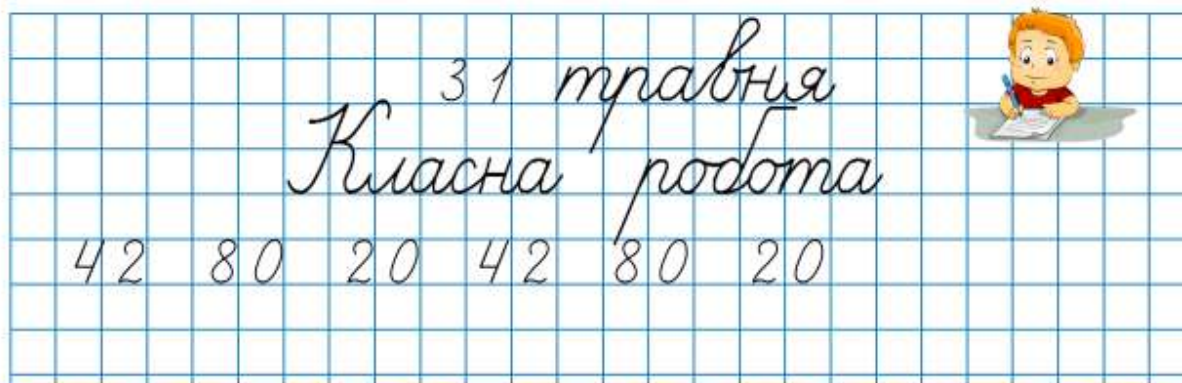 31 травня
Класна робота
42 80 20 42 80 20